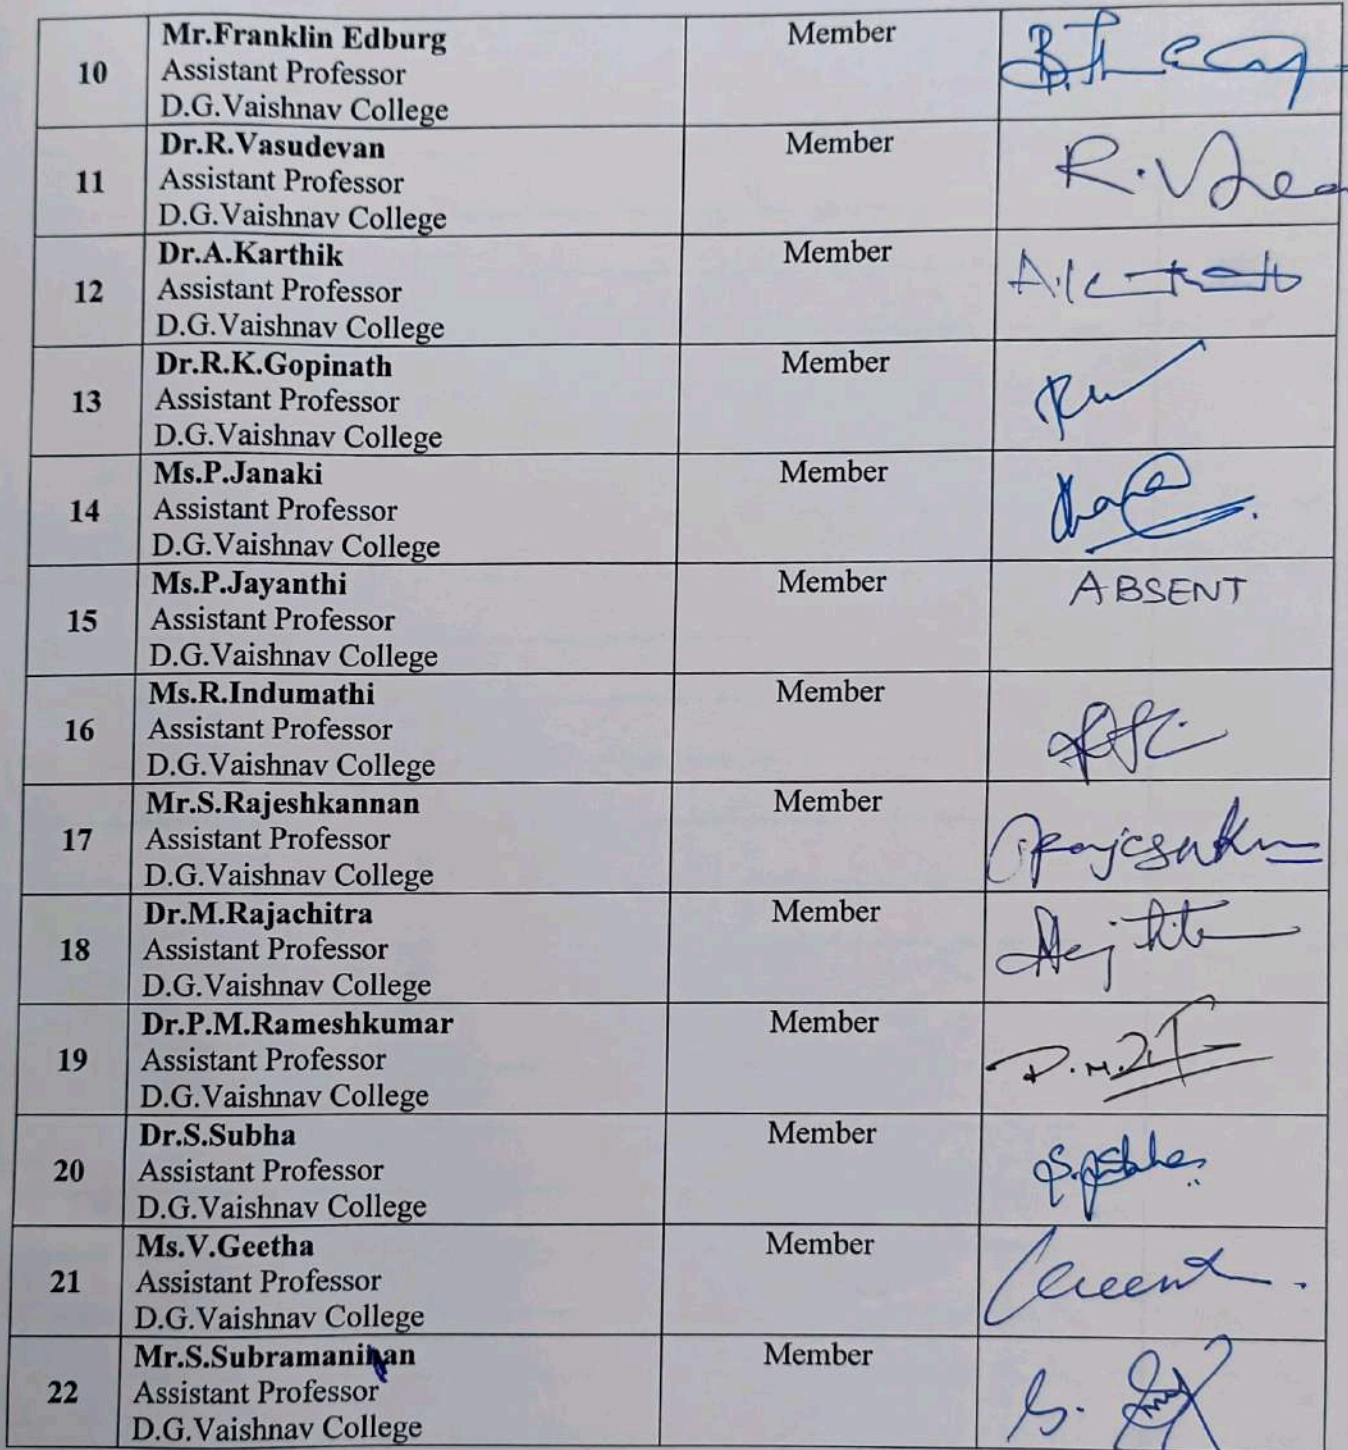 10
Mr.Franklin Edburg
Assistant Professor
D.G.Vaishnav College
Member
11
Dr.R.Vasudevan
Assistant Professor
D.G.Vaishnav College
Member
R.V
12
Dr.A.Karthik
Assistant Professor
D.G.Vaishnav College
Member
13
Dr.R.K.Gopinath
Assistant Professor
D.G.Vaishnav College
Member
14
Ms.P.Janaki
Assistant Professor
D.G.Vaishnav College
Member
15
Ms.P.Jayanthi
Assistant Professor
D.G.Vaishnav College
Member
ABSENT
16
Ms.R.Indumathi
Assistant Professor
D.G.Vaishnav College
Member
17
Mr.S.Rajeshkannan
Assistant Professor
D.G.Vaishnav College
Member
18
Dr.M.Rajachitra
Assistant Professor
D.G.Vaishnav College
Member
19
Dr.P.M.Rameshkumar
Assistant Professor
D.G.Vaishnav College
Member
20
Dr.S.Subha
Assistant Professor
D.G.Vaishnav College
Member
21
Ms.V.Geetha
Assistant Professor
D.G.Vaishnav College
Member
22
Assistant Professor
D.G.Vaishnav College
Member